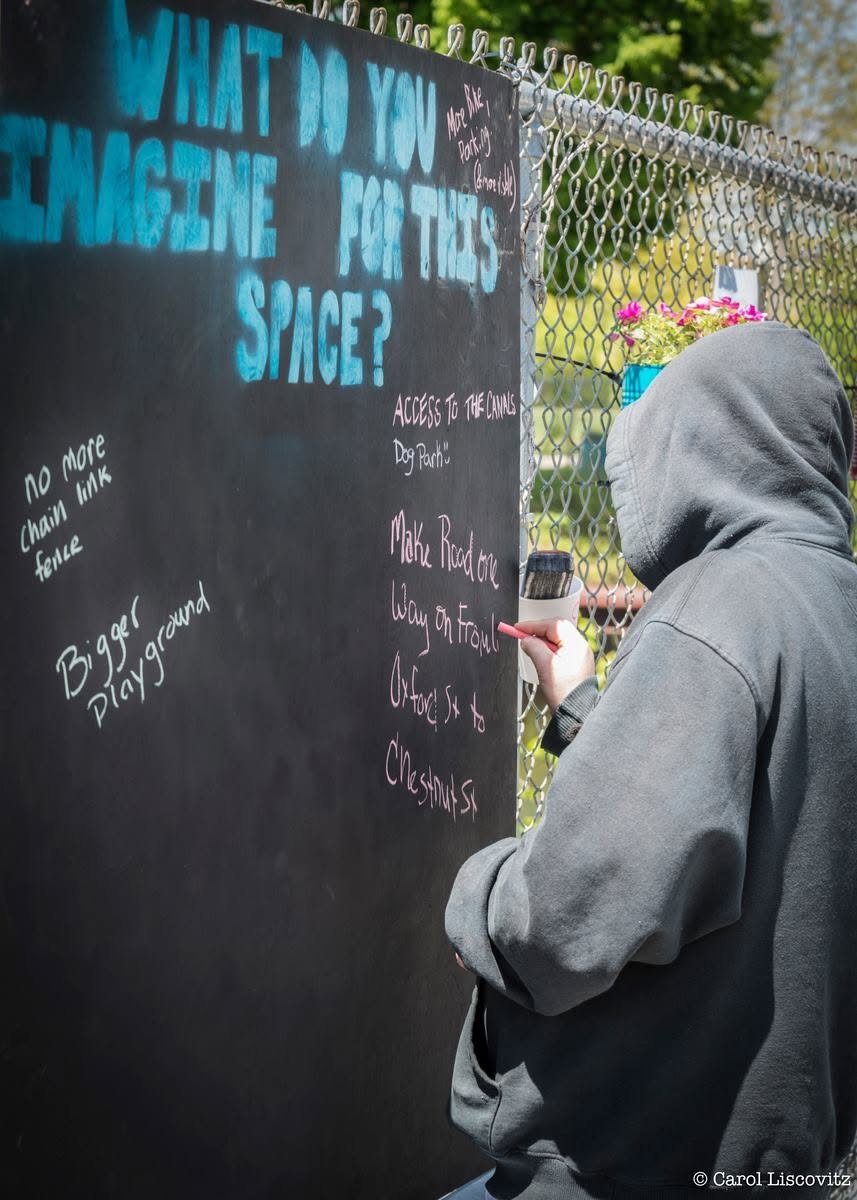 WHAT DO YOU
IMAGINE FOR THIS
SPACE?
More Bike
Parking
ACCESS TO THE CANALS
Dog Park
no more
chain link
fence
Bigger
Playground
Make Road one
Way on From
Oxford St to
Chestnut St
© Carol Liscovitz